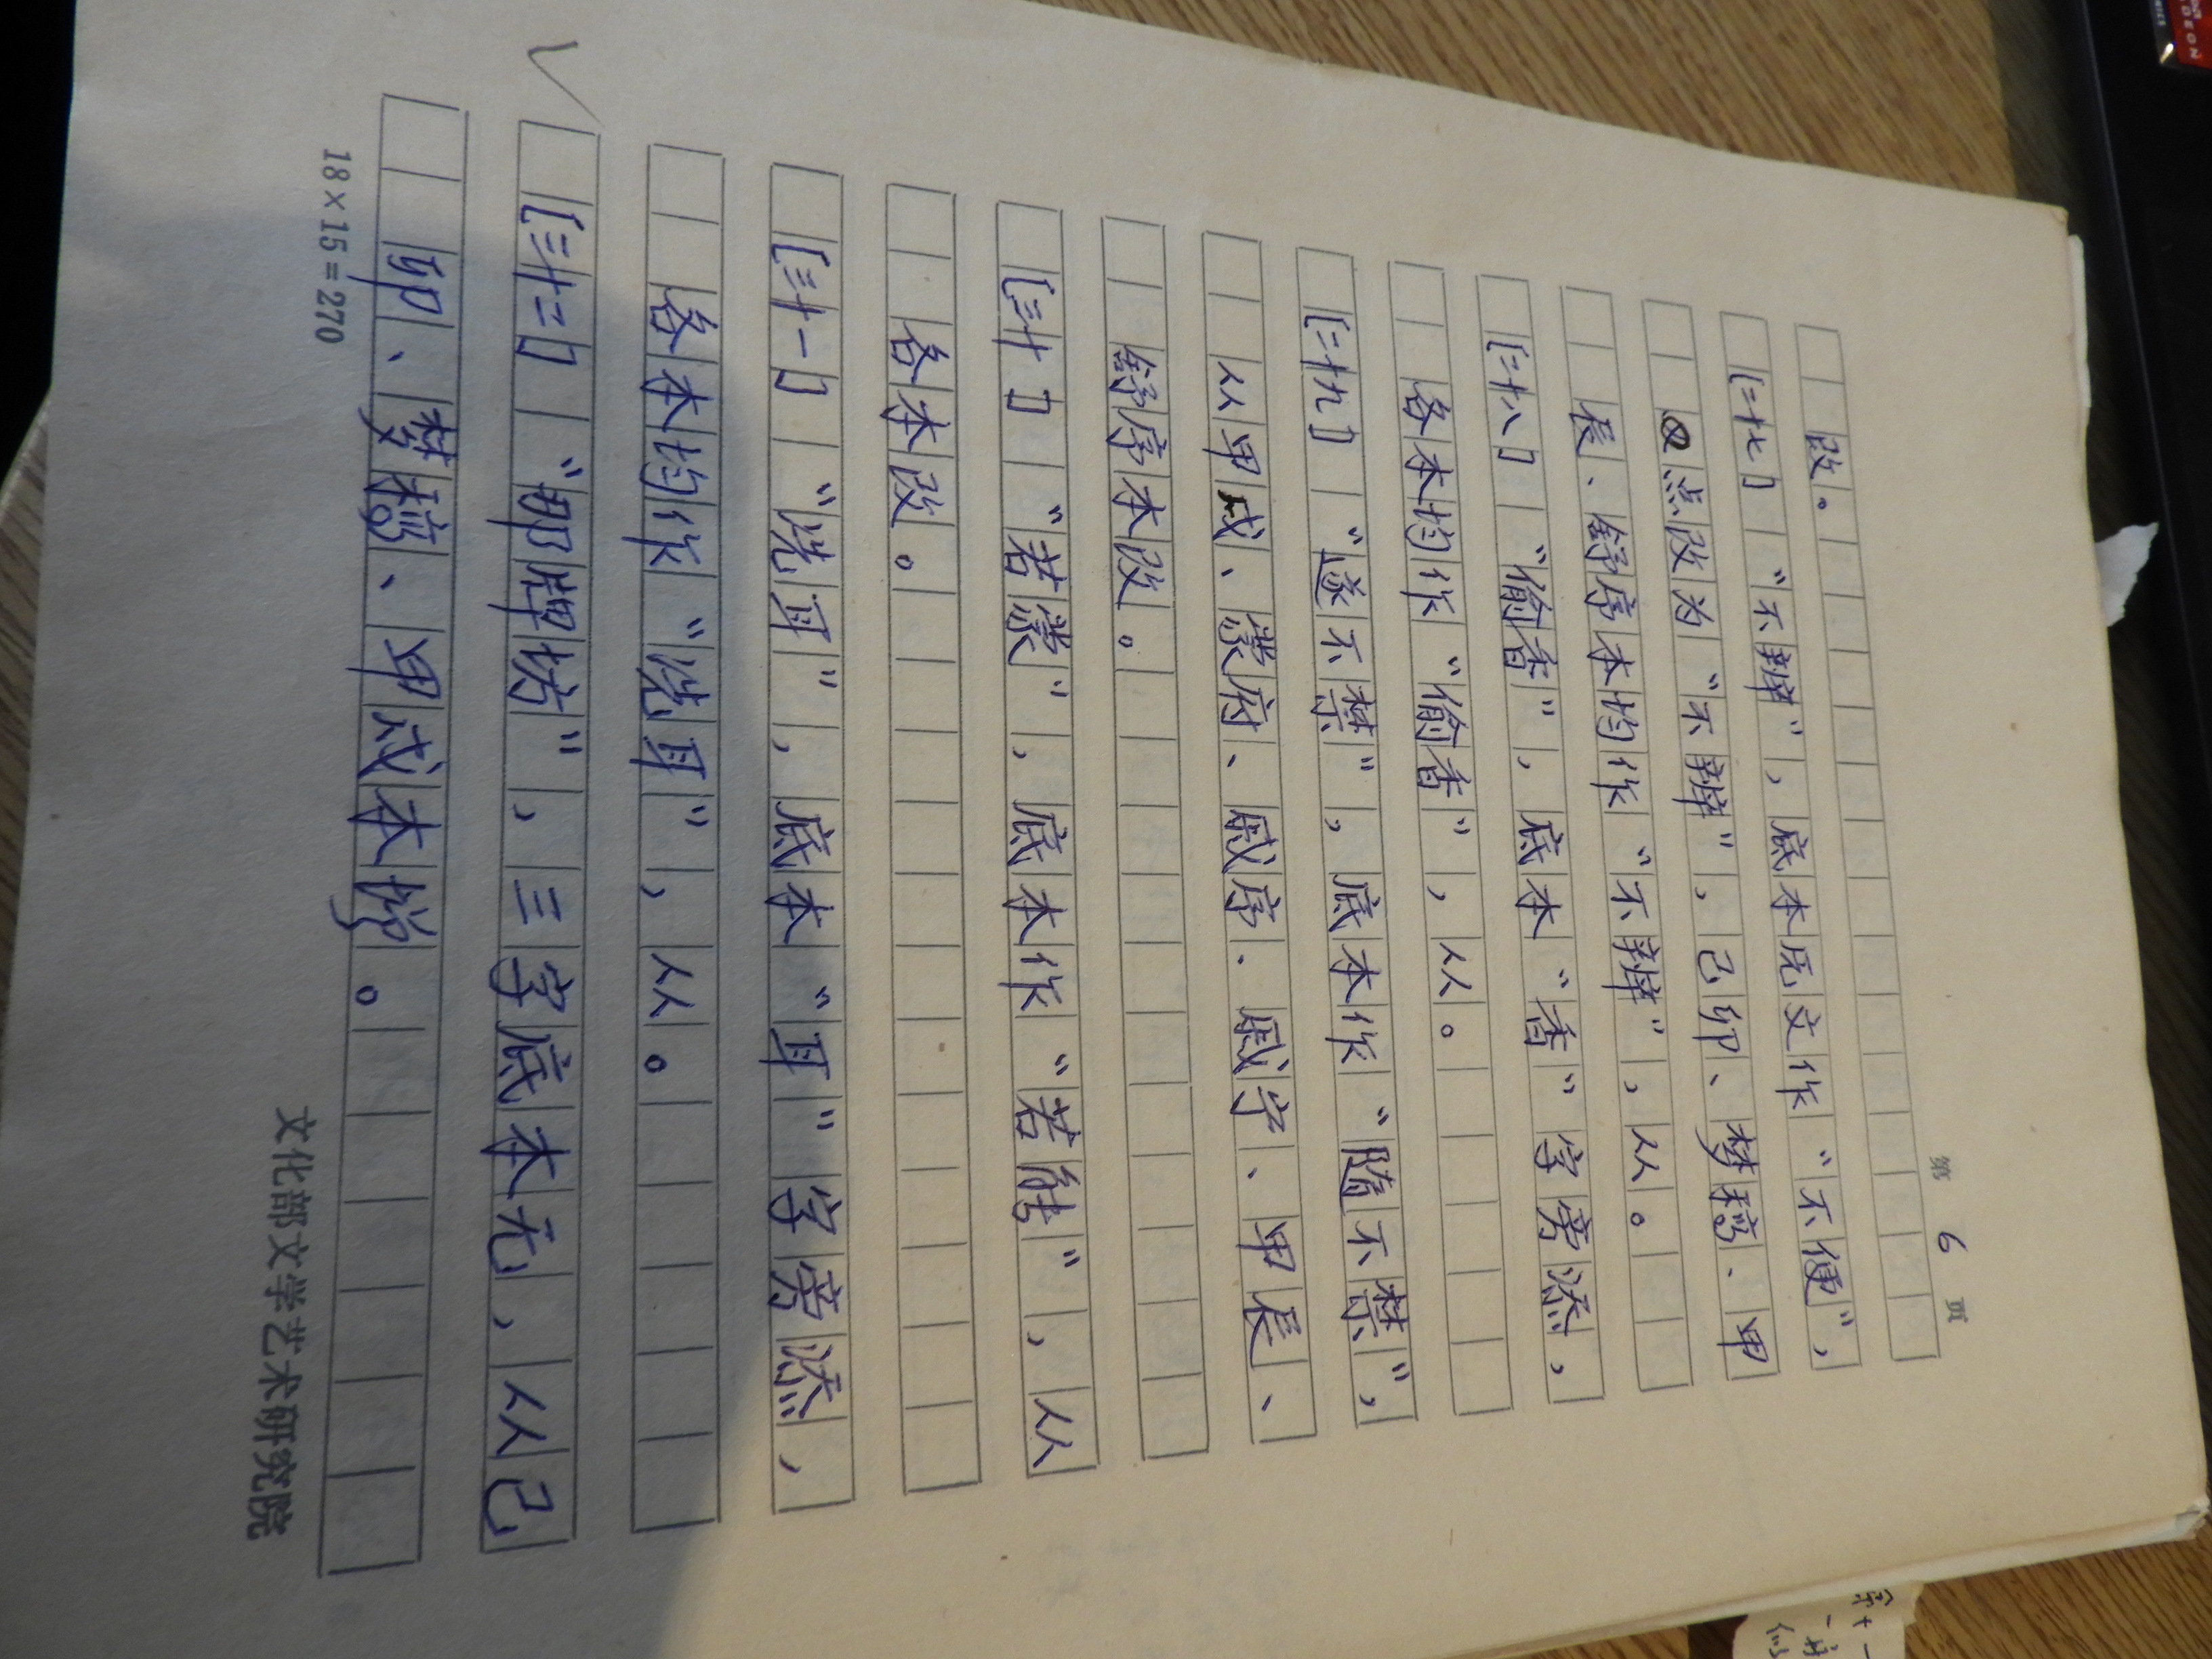 第 6 页
改。
[二十七] “不辨”，底本原文作“不便”，
又点改为“不辨”，己卯、梦稿、甲
辰、舒序本均作“不辨”，从。
[二十八] “偷香”，底本“香”字旁添，
各本均作“偷香”，从。
[二十九] “遂不禁”，底本作“随不禁”，
从甲戌、蒙府、戚序、戚宁、甲辰、
舒序本改。
[三十] “若蒙”，底本作“若能”，从
各本改。
[三十一] “洗耳”，底本“耳”字旁添，
各本均作“洗耳”，从。
[三十二] “那牌坊”，三字底本无，从己
卯、梦稿、甲戌本增。
18×15=270
文化部文学艺术研究院